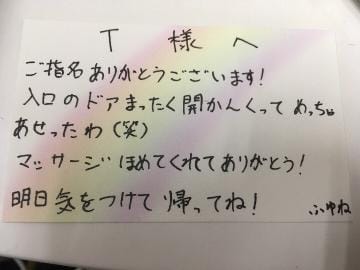 T 様 へ
ご指名ありがとうございます!
入口のドアまったく開かんくってめっちゃ
あせったわ(笑)
マッサージほめてくれてありがとう!
明日気をつけて帰ってね!
ふゆね